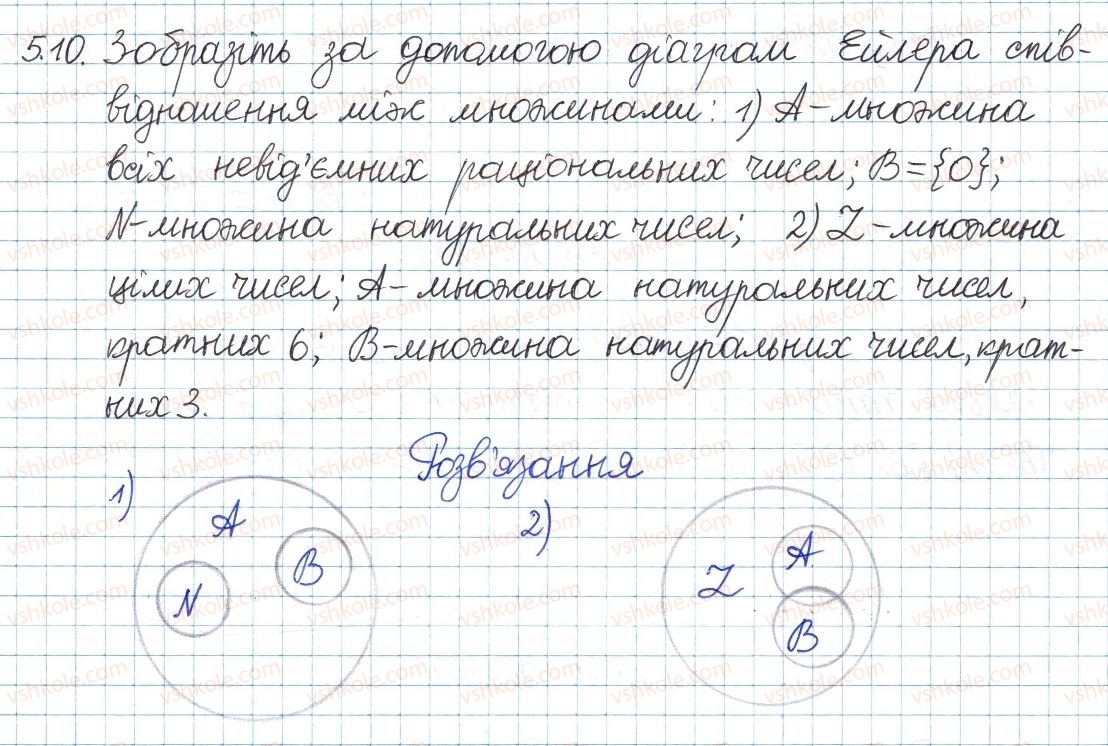 5.10. Зобразіть за допомогою діаграм Ейлера спів-
відношення між множинами: 1) A-множина
всіх невід'ємних раціональних чисел; B={0};
N-множина натуральних чисел; 2) Z-множина
цілих чисел; A-множина натуральних чисел,
кратних 6; B-множина натуральних чисел, крат-
них 3.
Розв'язання
1) A B N
2) Z A B
vshkole.com